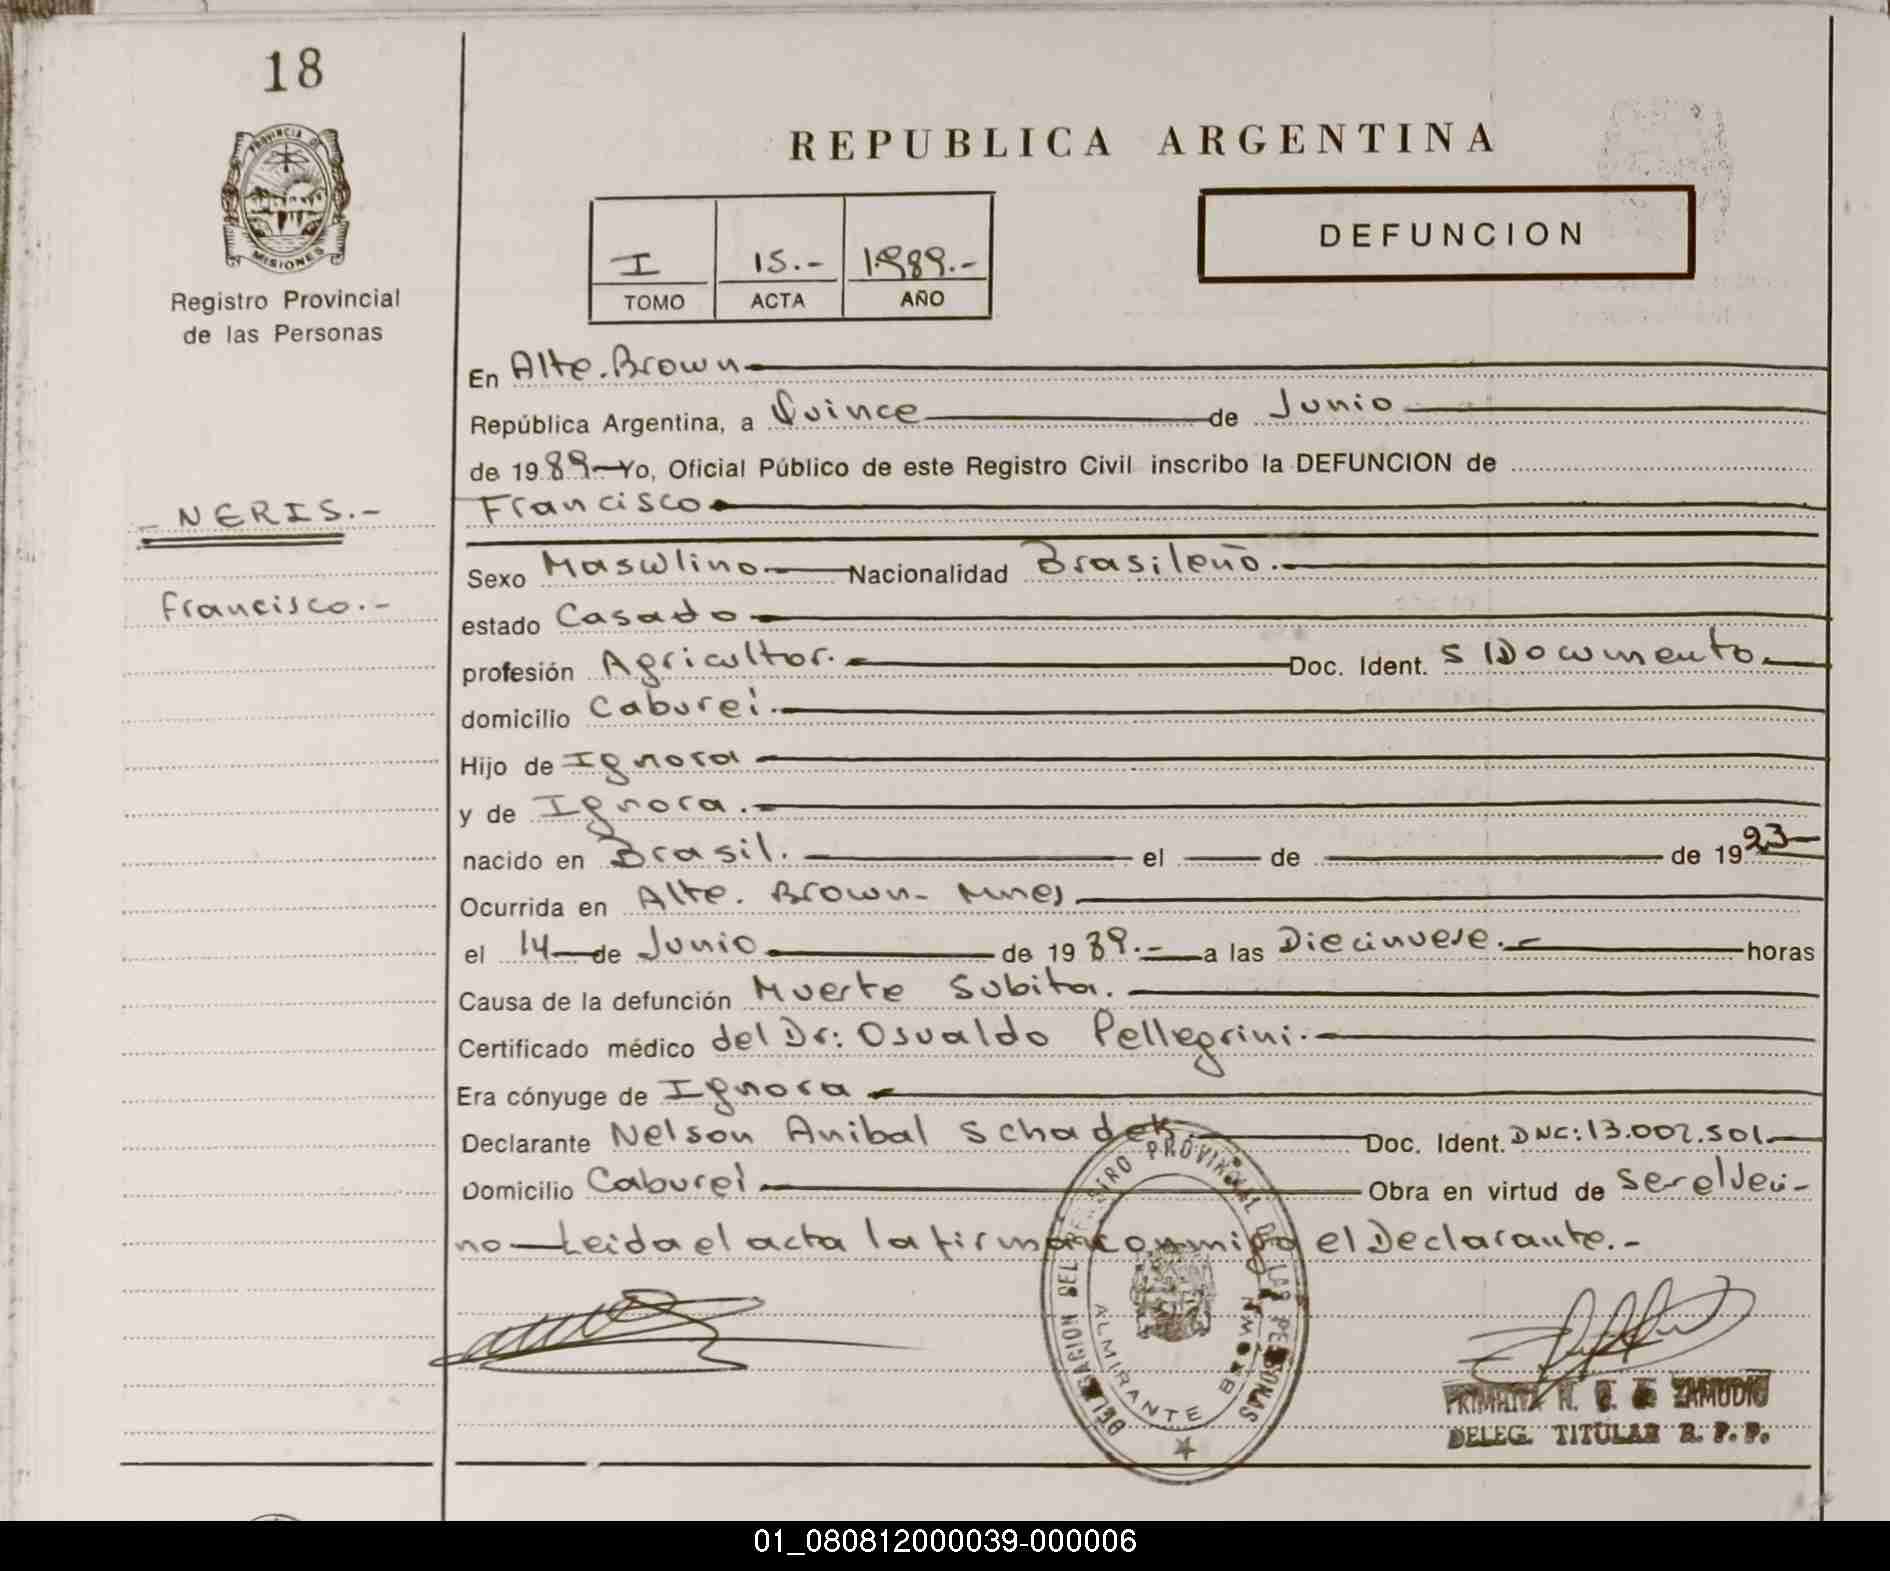 18
PROVINCIA DE
MISIONES
Registro Provincial
de las Personas
REPUBLICA ARGENTINA
I 15.- 1989.-
TOMO ACTA AÑO
DEFUNCION
En Alte. Brown
República Argentina, a Quince de Junio
de 1989 Yo, Oficial Público de este Registro Civil inscribo la DEFUNCION de
- NERIS.-
Francisco
Sexo Masculino Nacionalidad Brasileño.
Francisco.-
estado Casado
profesión Agricultor. Doc. Ident. S/Documento
domicilio Caburei.
Hijo de Ignora
y de Ignora.
nacido en Brasil. el de de 1923
Ocurrida en Alte. Brown - Mnes
el 14 de Junio de 1989.- a las Diecinueve. horas
Causa de la defunción Muerte Subita.
Certificado médico del Dr: Osvaldo Pellegrini.
Era cónyuge de Ignora
Declarante Nelson Anibal Schadek Doc. Ident. DNC: 13.002.501.
Domicilio Caburei Obra en virtud de Ser el Veci-
no Leida el acta la firman conmigo el Declarante.-
DELEGACION DEL REGISTRO PROVINCIAL DE LAS PERSONAS
ALMIRANTE BROWN
ZAMUDIO
DELEG. TITULAR R. P. P.
01_080812000039-000006